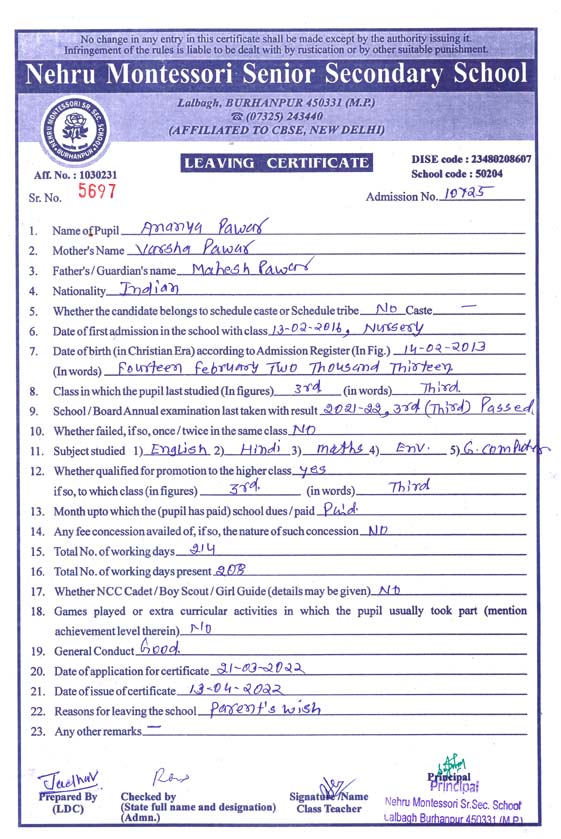 No change in any entry in this certificate shall be made except by the authority issuing it.
Infringement of the rules is liable to be dealt with by rustication or by other suitable punishment.
Nehru Montessori Senior Secondary School
NEHRU MONTESSORI SR. SEC. SCHOOL
BURHANPUR
Lalbagh, BURHANPUR 450331 (M.P.)
☎ (07325) 243440
(AFFILIATED TO CBSE, NEW DELHI)
LEAVING CERTIFICATE
DISE code : 23480208607
School code : 50204
Aff. No. : 1030231
Sr. No. 5697
Admission No. 10725
1. Name of Pupil Ananya Pawar
2. Mother's Name Varsha Pawar
3. Father's / Guardian's name Mahesh Pawar
4. Nationality Indian
5. Whether the candidate belongs to schedule caste or Schedule tribe No Caste —
6. Date of first admission in the school with class 13-02-2016, Nursery
7. Date of birth (in Christian Era) according to Admission Register (In Fig.) 14-02-2013
(In words) Fourteen February Two Thousand Thirteen
8. Class in which the pupil last studied (In figures) 3rd (in words) Third
9. School / Board Annual examination last taken with result 2021-22, 3rd (Third) Passed
10. Whether failed, if so, once / twice in the same class No
11. Subject studied 1) English 2) Hindi 3) maths 4) Env. 5) G. computer
12. Whether qualified for promotion to the higher class yes
if so, to which class (in figures) 3rd. (in words) Third
13. Month upto which the (pupil has paid) school dues / paid Paid.
14. Any fee concession availed of, if so, the nature of such concession No
15. Total No. of working days 214
16. Total No. of working days present 208
17. Whether NCC Cadet / Boy Scout / Girl Guide (details may be given) No
18. Games played or extra curricular activities in which the pupil usually took part (mention
achievement level therein) No
19. General Conduct Good.
20. Date of application for certificate 21-03-2022
21. Date of issue of certificate 13-04-2022
22. Reasons for leaving the school Parent's wish
23. Any other remarks —
Jadhav
Prepared By
(LDC)
Checked by
(State full name and designation)
(Admn.)
Signature / Name
Class Teacher
Principal
Principal
Nehru Montessori Sr.Sec. School
Lalbagh Burhanpur 450331 (M.P.)